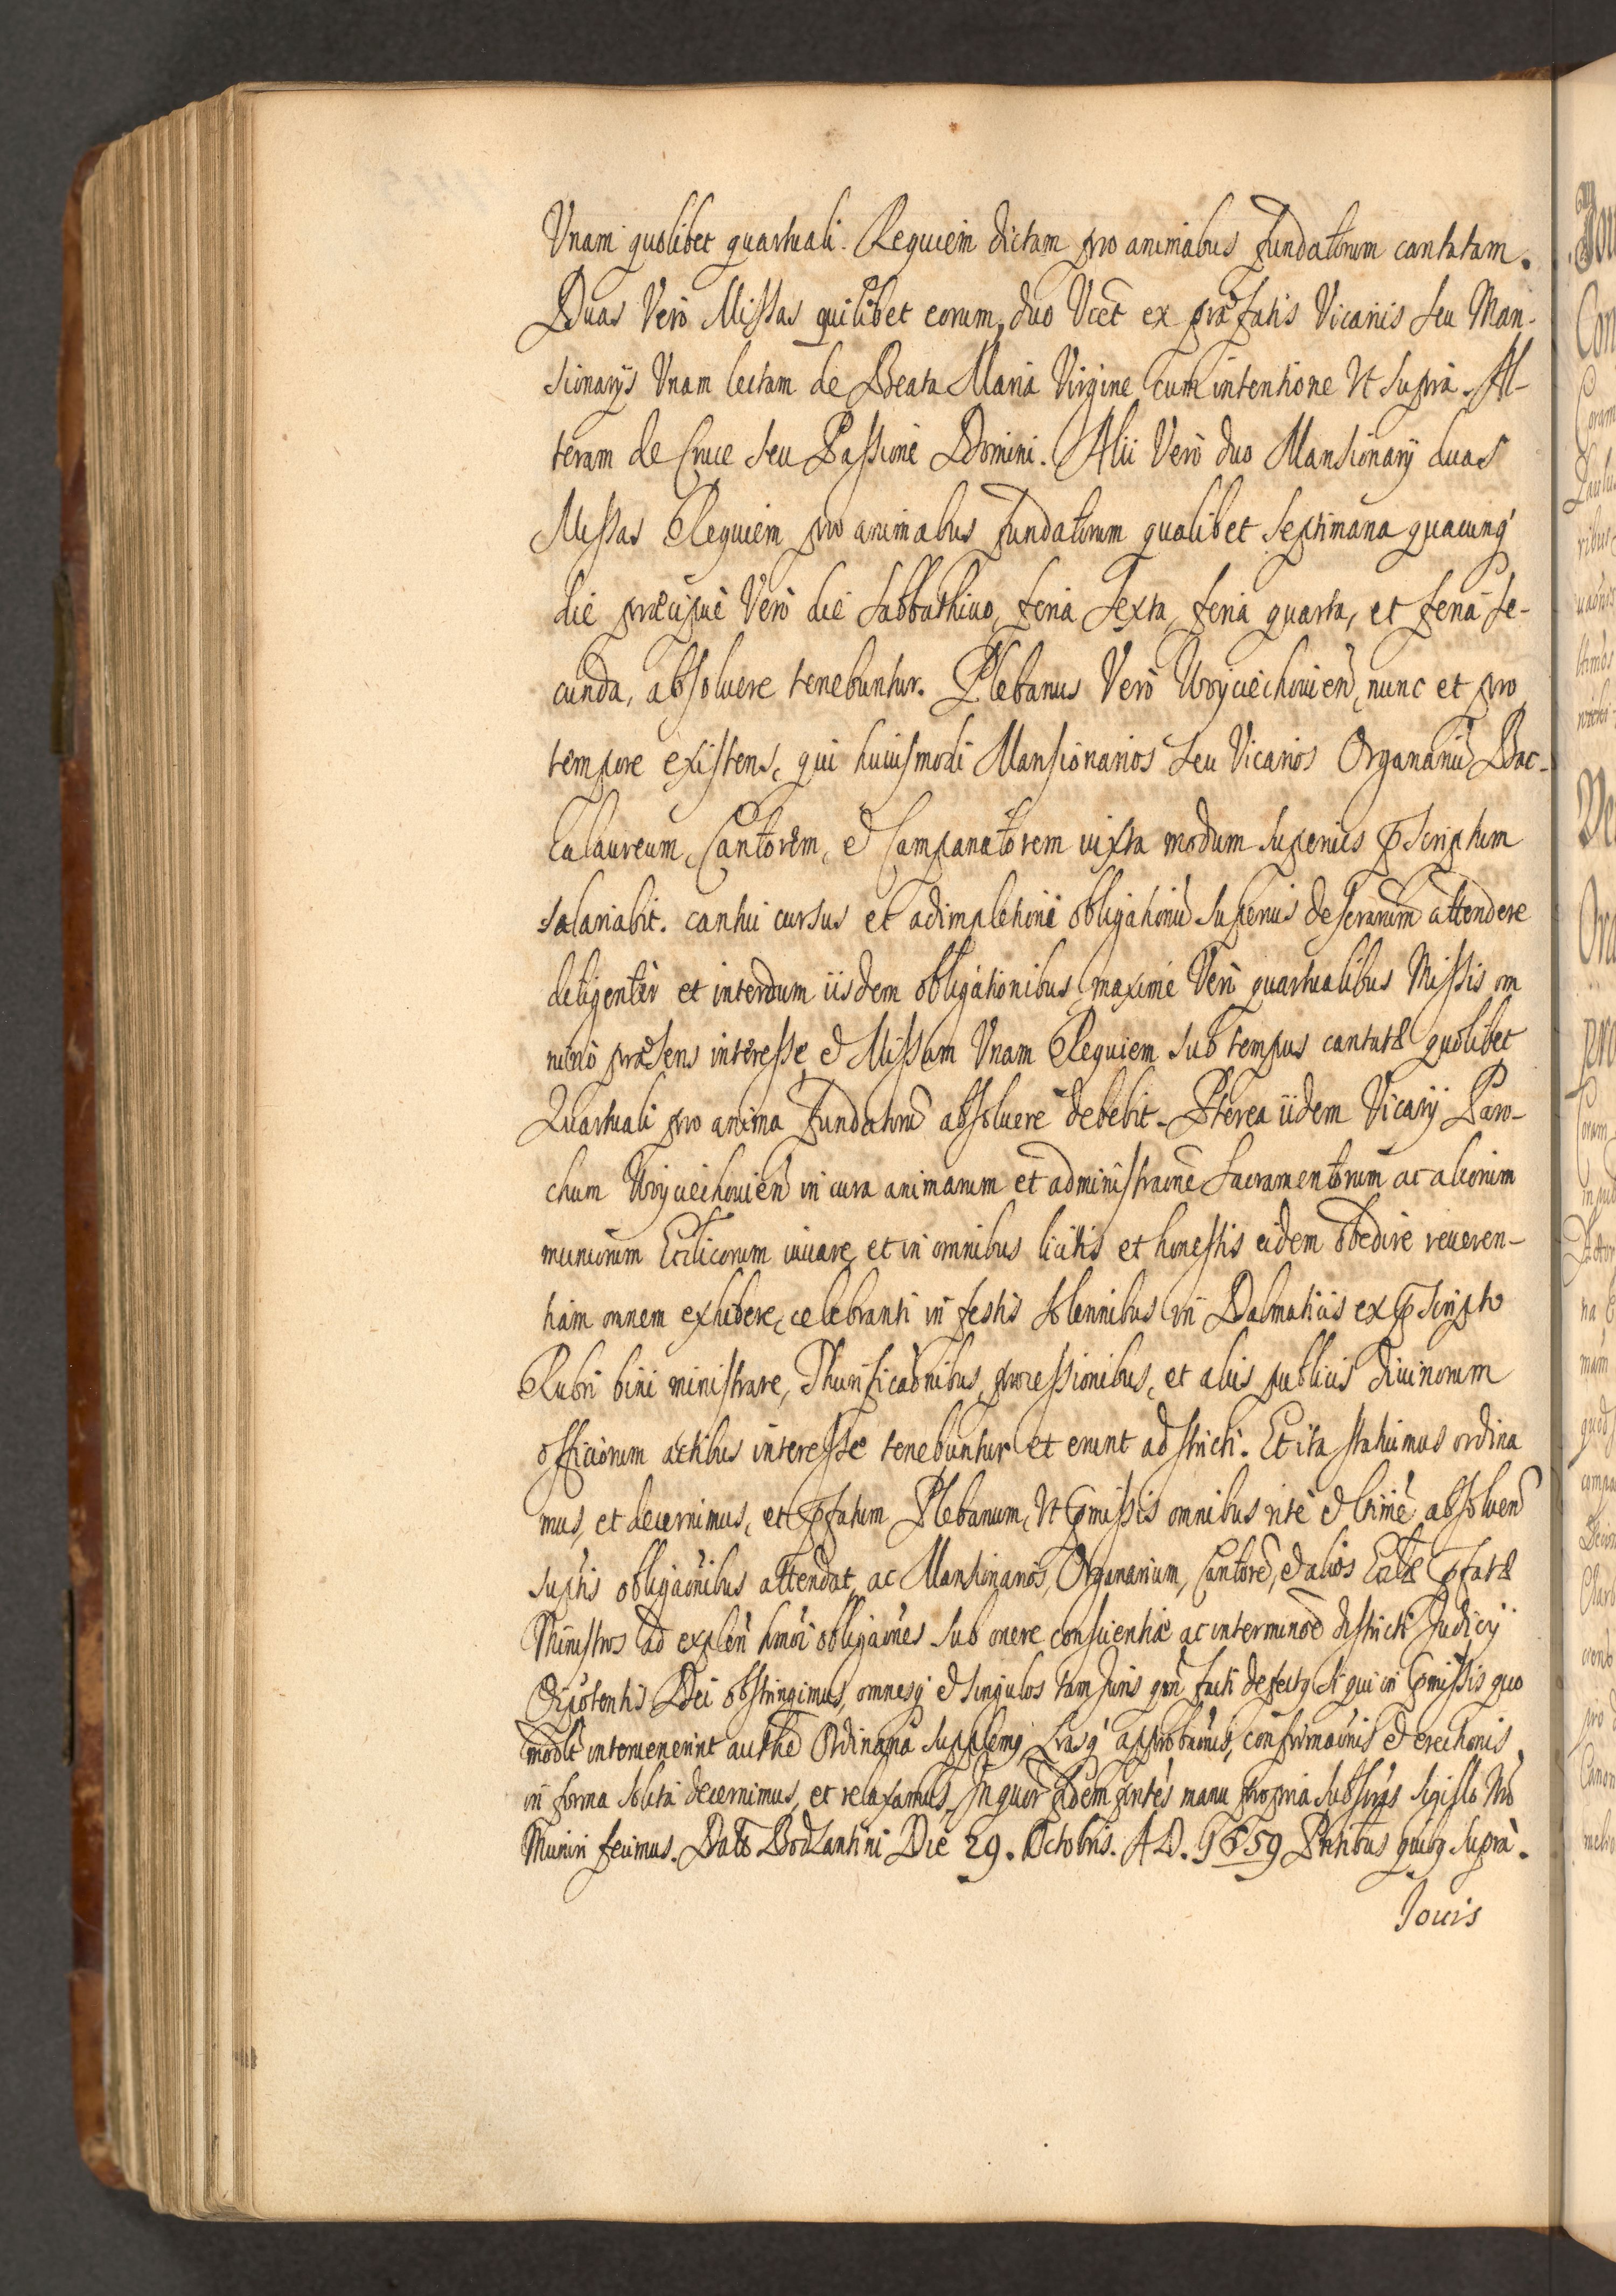 Vnam quolibet quartuali. Requiem dictam pro animabus fundatorum cantatam.
Duas Verò Missas quilibet eorum, duo Vcet ex præfatis Vicarijs seu Man-
sionarijs Vnam lectam de Beata Maria Virgine cum intentione Vt supra. Al-
teram de Cruce seu Passione Domini. Alii Verò duo Mansionarij duas
Missas Requiem pro animabus fundatorum qualibet septimana quacunq'
die præcipuè Verò die Sabbathiuo, feria sexta, feria quarta, et feria se-
cunda, absoluere tenebuntur. Plebanus Verò Woyciechouien, nunc et pro
tempore existens, qui huiusmodi Mansionarios seu Vicarios Organariũ Bac-
calaureum, Cantorem, et Campanatorem iuxta modum superius pscriptum
salariabit. cantui cursus et adimpletioni obligationũ superius deserarum attendere
diligentèr et interdum iisdem obligationibus, maximè Verò quartualibus Missis om
ninò præsens interesse, et Missam Vnam Requiem sub tempus cantatæ quolibet
Quartuali pro anima fundatorũ absoluere debebit. Pterea iidem Vicarij Paro-
chum Woyciechouien in cura animarum et administraõne Sacramentorum ac aliorum
muniorum Ecclicorum iuuare, et in omnibus licitis et honestis eidem obedire reueren-
tiam omnem exhibere, celebranti in festis solennibus in Dalmaticis ex pscripto
Rubri bini ministrare, Thurificaõnibus, processionibus, et aliis publicis diuinorum
officiorum actibus interesse tenebuntur et erunt adstricti. Et ita statuimus ordina
mus, et decernimus, et pfatum Plebanum, Vt pmissis omnibus ritè et ltimè absoluen
suptis obligaõnibus attendat, ac Mansionarios, Organarium, Cantorẽ, et alios Eccl[a]æ pfatæ
Ministros ad explen hmõi obligaõnes sub onere conscientiæ ac interminoẽ districti Judicij
Oipotentis Dei obstringimus, omnesq et singulos tam Juris qm facti defectq si qui in pmissis quo
modlt interuenerint autthe Ordinaria supplemq, Lrasq' approbaõnis, confirmaõnis et erectionis
in forma solita decernimus, et relaxamus. In quor fidem pntes manu propria subscrips sigillo Nro
Muniri fecimus. Dat Bodzantini Die 29. Octobris. A D. 1659 Pntibus quibq supra.
Jouis